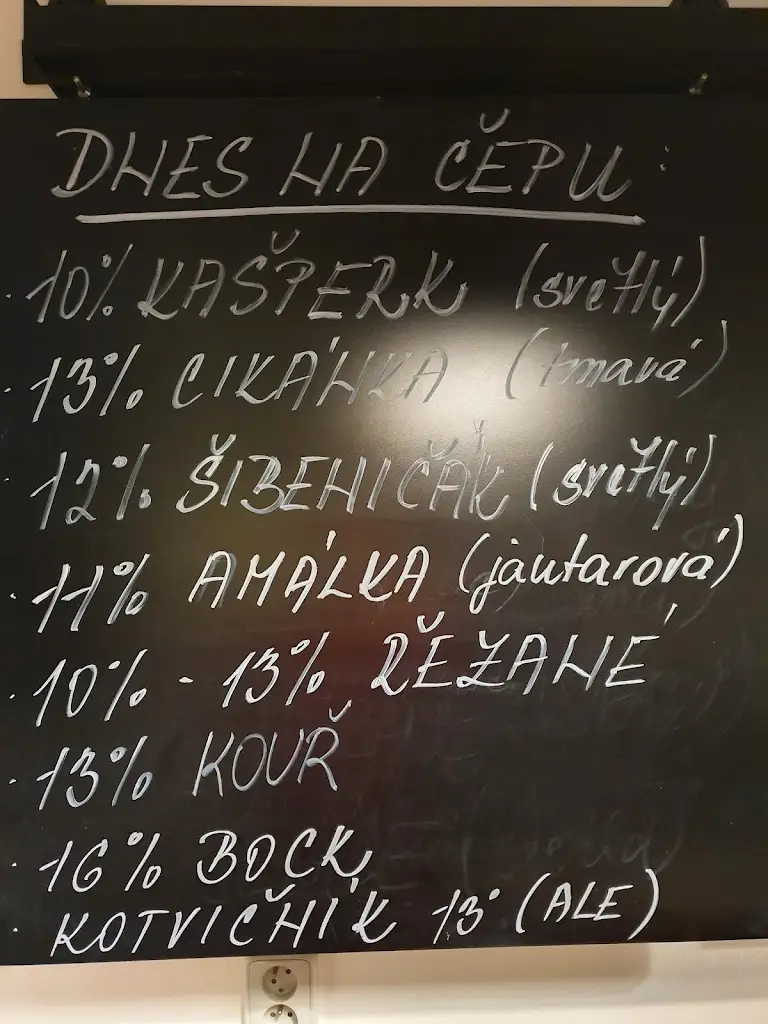 DNES NA ČEPU:
· 10% KAŠPERK (světlý)
· 13% CIKÁNKA (tmavá)
· 12% ŠIBENIČÁK (světlý)
· 11% AMÁLKA (jantarová)
· 10% - 13% ŘEZANÉ
· 13% KOUŘ
· 16% BOCK
· KOTVIČNÍK 13° (ALE)